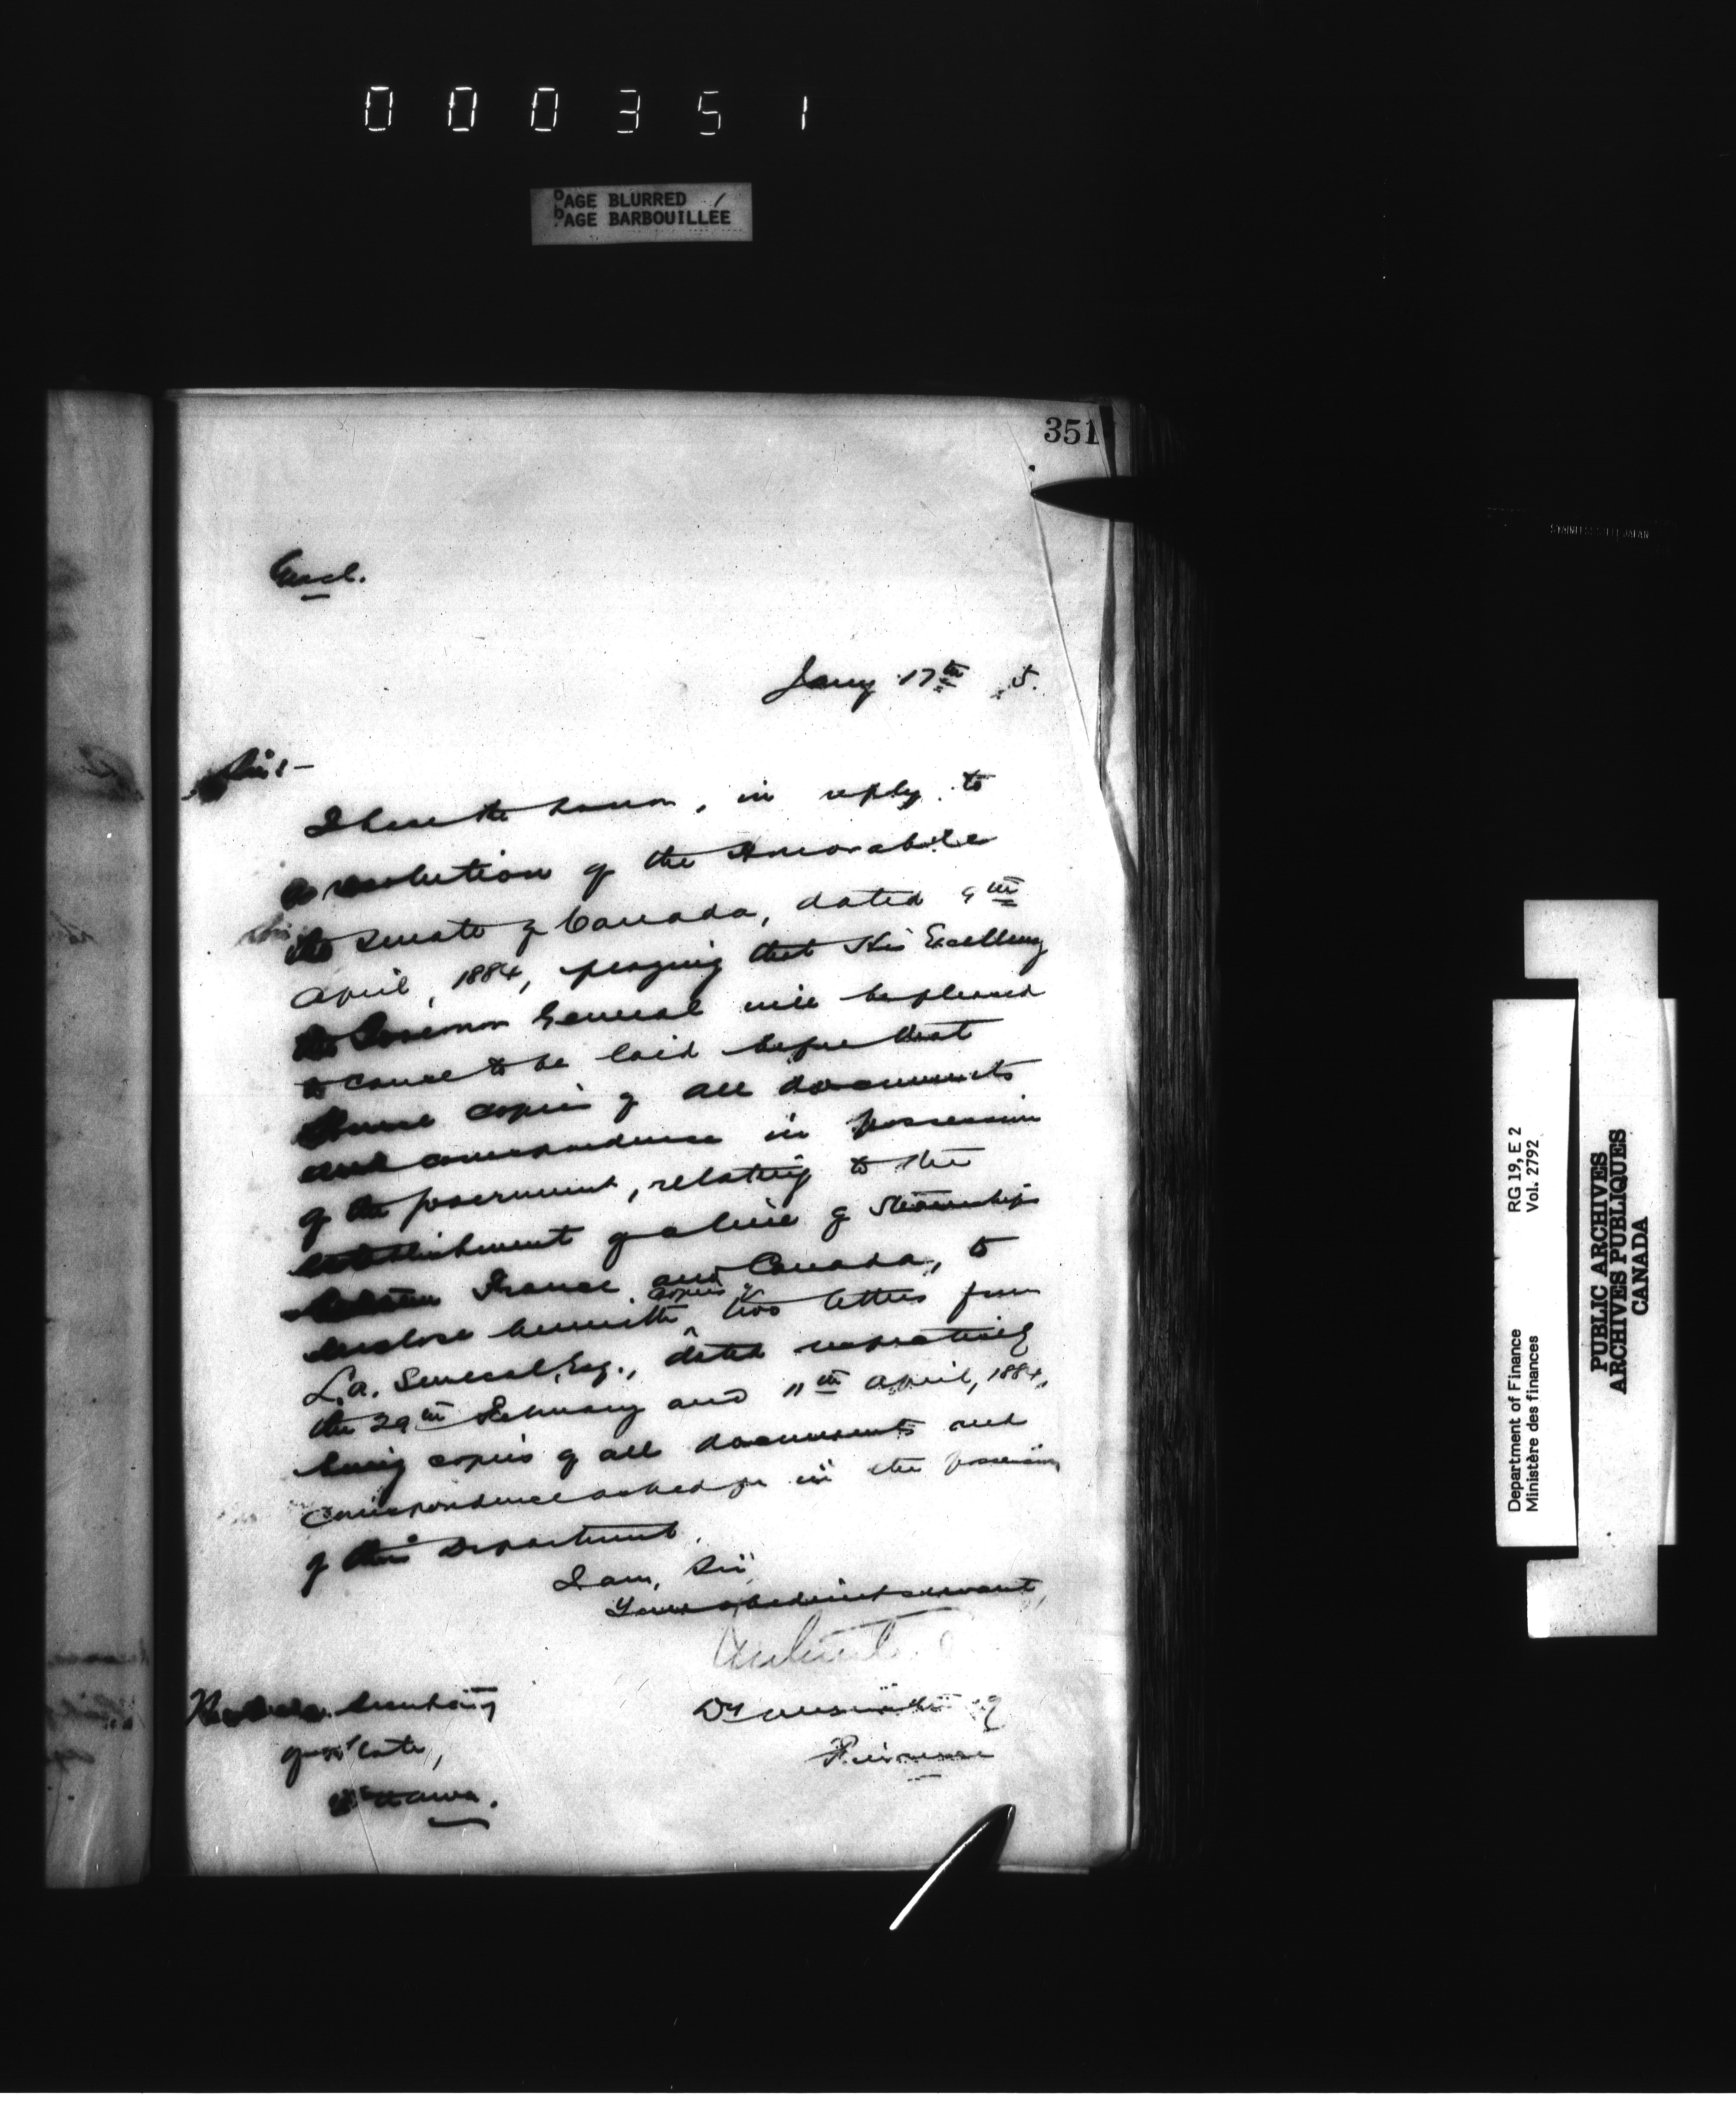 000351
PAGE BLURRED
PAGE BARBOUILLÉE
351
Encl.
Jany 17th 5.
Sir:-
I have the honor, in reply to
a resolution of the Honorable
the Senate of Canada, dated 9th
April, 1884, praying that His Excellency
the Governor General will be pleased
to cause to be laid before that
House copies of all documents
and correspondence in possession
of the Government, relating to the
establishment of a line of Steamships
between France and Canada, to
enclose herewith copies of two letters from
L.A. Senecal, Esq., dated respectively
the 29th February and 11th April, 1884,
being copies of all documents and
correspondence asked for in the possession
of this Department.
I am, Sir,
Your obedient servant,
Dy
Finance
of State,
Ottawa.
STAINLESS STEEL JAPAN
Department of Finance RG 19, E 2
Ministère des finances Vol. 2792
PUBLIC ARCHIVES
ARCHIVES PUBLIQUES
CANADA